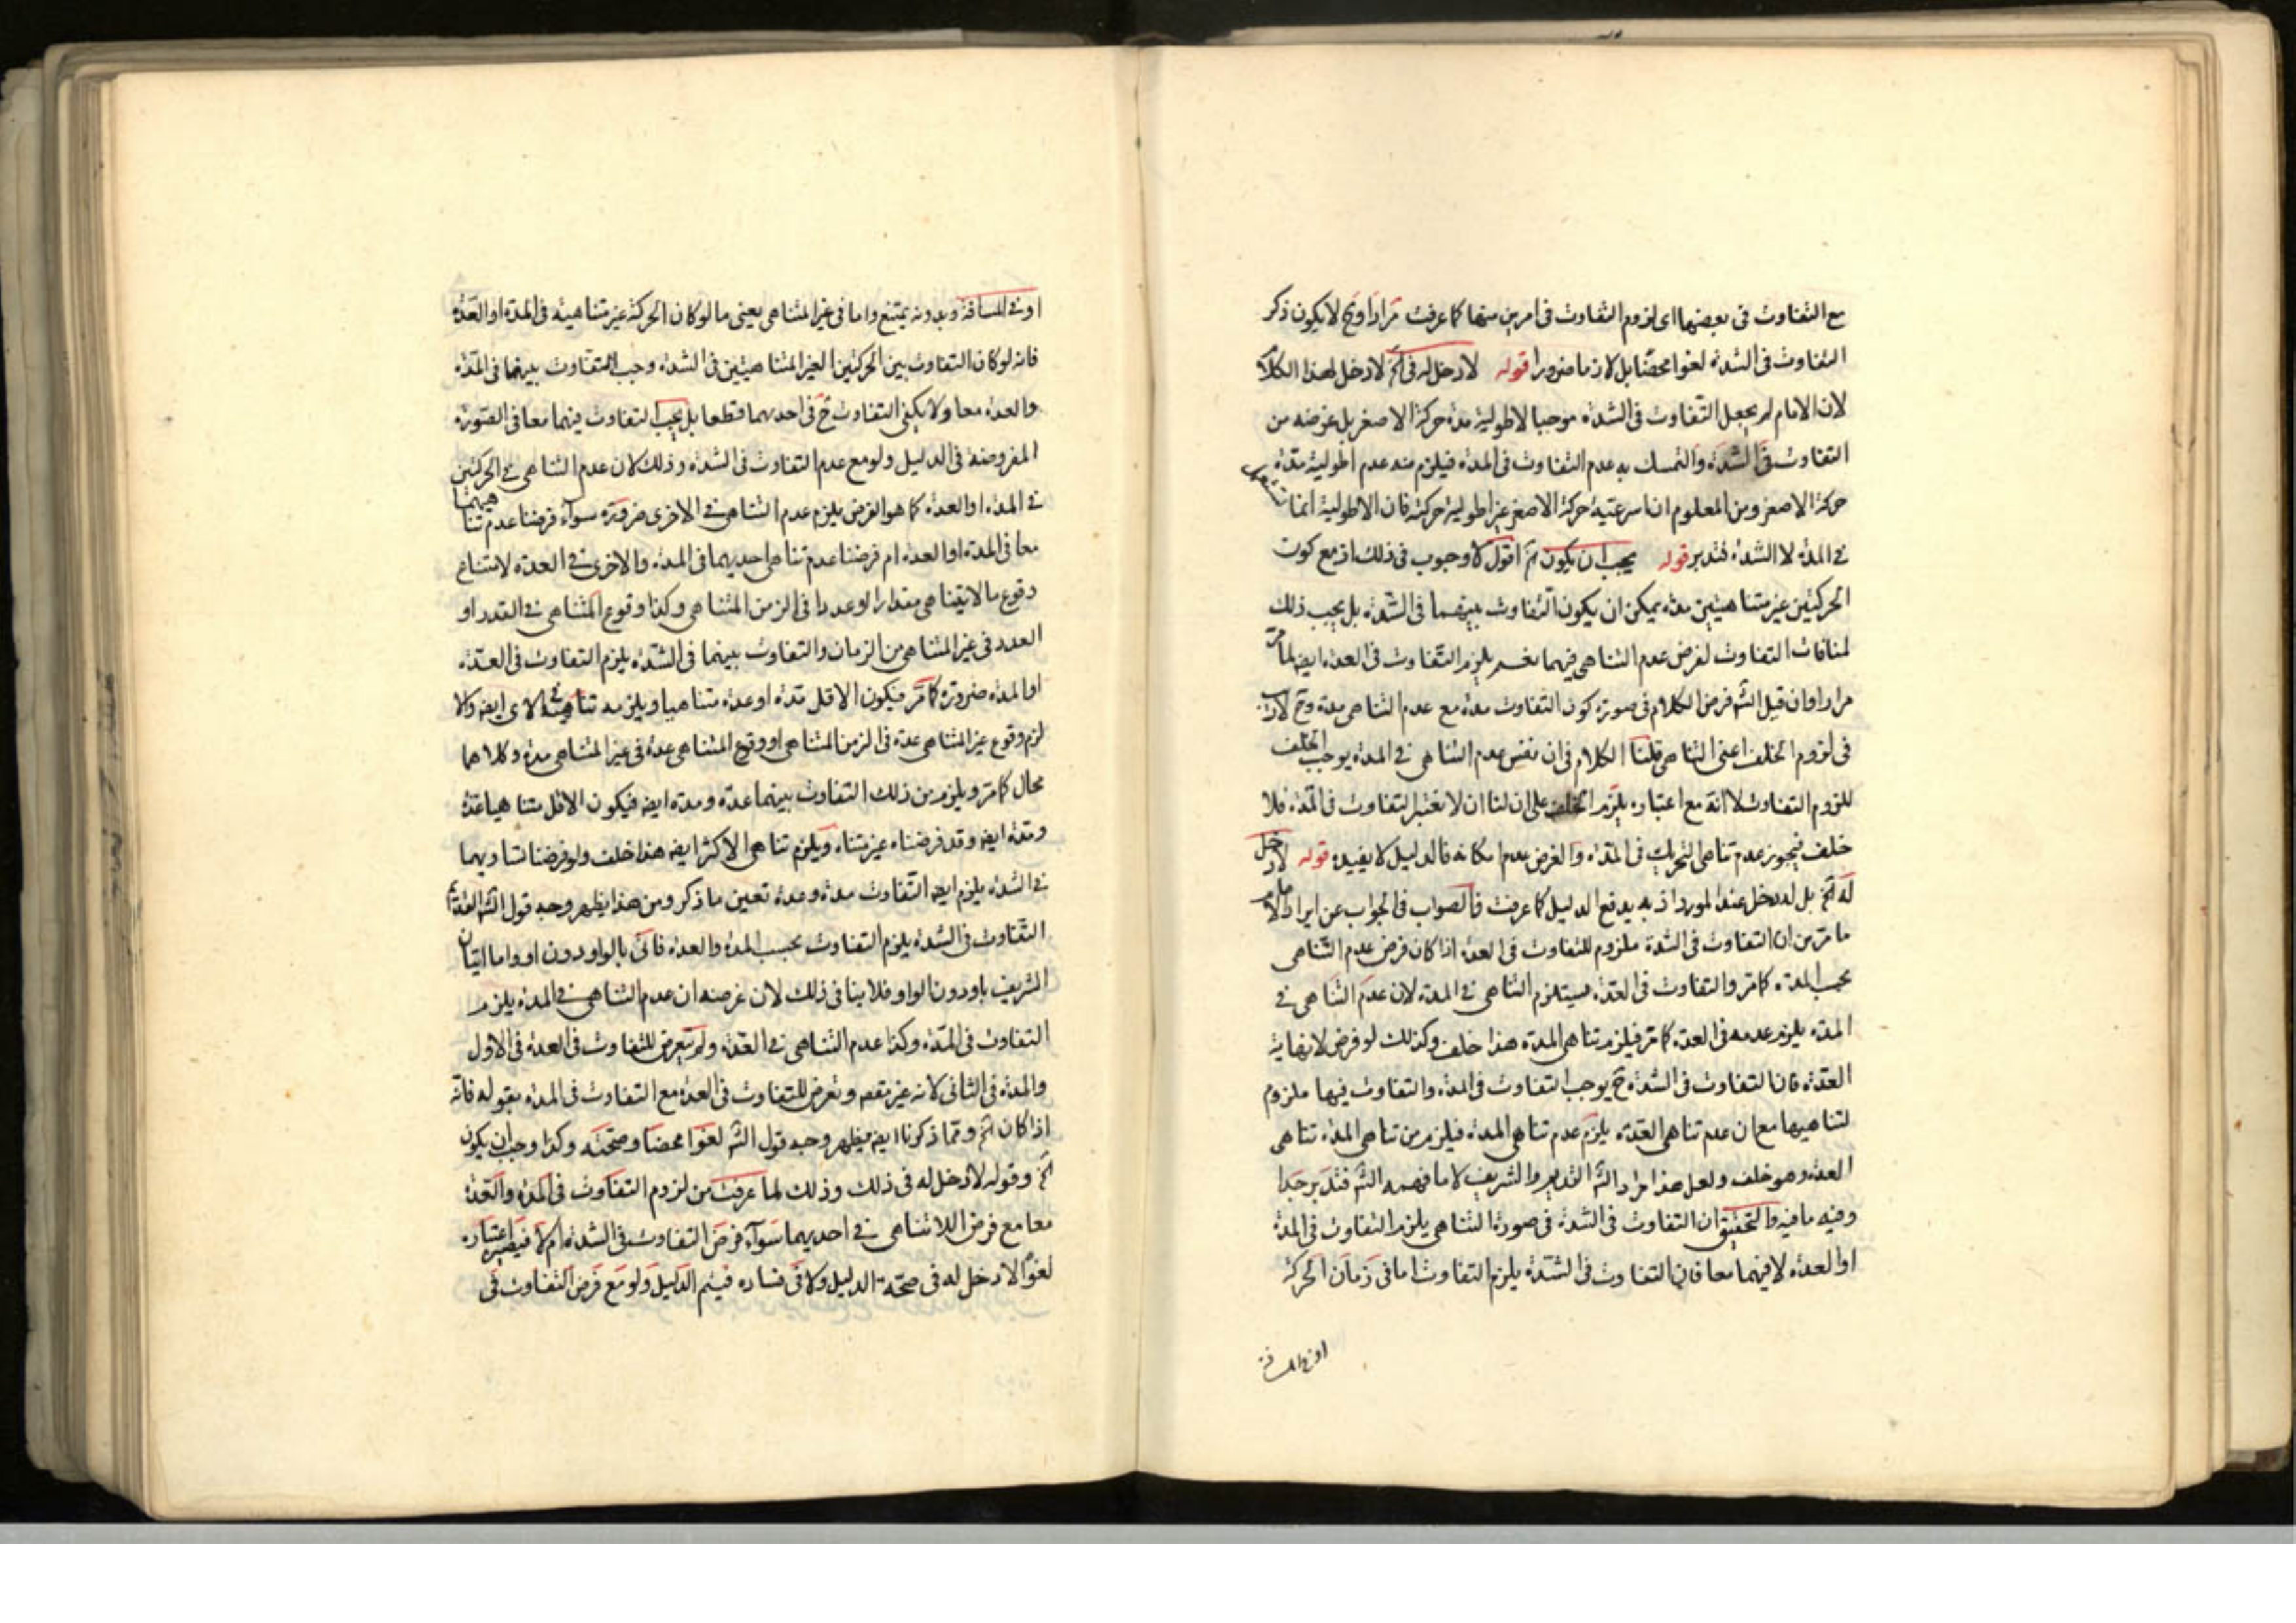 مع التفاوت فى بعضها اى لزوم التفاوت فى امرين منها كما عرفت مرارا وح لا يكون ذكر
التفاوت فى الشدة لغوا محضا بل لازما ضرورا قوله لا دخل له فى الخ لا دخل لهذا الكلام
لان الامام لم يجعل التفاوت فى الشدة موجبا لاطولية مدة حركة الاصغر بل غرضه من
التفاوت فى الشدة والتمسك به عدم التفاوت فى المدة فيلزم منه عدم اطولية مدة
حركة الاصغر ومن المعلوم ان اسرعية حركة الاصغر غير اطولية حركته فان الاطولية انما
فى المدة لا الشدة فتدبر قوله يجب ان يكون الخ اقول لا وجوب فى ذلك اذ مع كون
الحركتين غير متناهيتين مدة يمكن ان يكون التفاوت بينهما فى الشدة بل يجب ذلك
لمنافات التفاوت لفرض عدم التناهى فيهما نعم يلزم التفاوت فى العدة ايضا لما مر
مرارا وان قيل الش فرض الكلام فى صورة كون التفاوت مدة مع عدم التناهى مدة وح
فى لزوم الخلف اعنى التناهى قلنا الكلام فى ان نفس عدم التناهى فى المدة يوجب الخلف
للزوم التفاوت لا انه مع اعتباره يلزم الخلف على ان لنا ان لا نعتبر التفاوت فى المدة فلا
خلف فيجوز عدم تناهى التحريك فى المدة والغرض عدم امكانه فالدليل لا يفيده قوله لا دخل
له الخ بل له دخل عند المورد اذ به يدفع الدليل كما عرفت فالصواب فى الجواب عن ايراد الامام
ما مر من ان التفاوت فى الشدة ملزوم للتفاوت فى العدة اذا كان فرض عدم التناهى
بحسب المدة كما مر والتفاوت فى العدة يستلزم التناهى فى المدة لان عدم التناهى فى
المدة يلزم عدمه فى العدة كما مر فيلزم تناهى المدة هذا خلف وكذلك لو فرض لا نهاية
العدة فان التفاوت فى الشدة ح يوجب التفاوت فى المدة والتفاوت فيها ملزوم
لتناهيها مع ان عدم تناهى العدة يلزم عدم تناهى المدة فيلزم من تناهى المدة تناهى
العدة وهو خلف ولعل هذا مراد الش القديم والشريف لا ما فهمه الش فتدبر جدا
وفيه ما فيه والتحقيق ان التفاوت فى الشدة فى صورة التناهى يلزم التفاوت فى المدة
او العدة لا فيهما معا فان التفاوت فى الشدة يلزم التفاوت اما فى زمان الحركة
او فى المسافة
او فى المسافة وبدونه يمتنع واما فى غير المتناهى يعنى ما لو كان الحركة غير متناهية فى المدة او العدة
فانه لو كان التفاوت بين الحركتين الغير المتناهيتين فى الشدة وجب التفاوت بينهما فى المدة
والعدة معا ولا يكفى التفاوت ح فى احديهما قطعا بل يجب التفاوت فيهما معا فى الصورة
المفروضة فى الدليل ولو مع عدم التفاوت فى الشدة وذلك لان عدم التناهى فى الحركتين
فى المدة او العدة كما هو الفرض يلزم عدم التناهى فى الاخرى ضرورة سواء فرضنا عدم تناهيهما
معا فى المدة او العدة ام فرضنا عدم تناهى احديهما فى المدة والاخرى فى العدة لامتناع
وقوع ما لا يتناهى مقدارا او عددا فى الزمن المتناهى وكذا وقوع المتناهى فى القدر او
العدد فى غير المتناهى من الزمان والتفاوت بينهما فى الشدة يلزم التفاوت فى العدة
او المدة ضرورة كما مر فيكون الاقل مدة او عدة متناهيا ويلزمه تناهيه فى الاخرى ايضا والا
لزم وقوع غير المتناهى عدة فى الزمن المتناهى او وقوع المتناهى عدة فى غير المتناهى مدة وكلاهما
محال كما مر ويلزم من ذلك التفاوت بينهما عدة ومدة ايضا فيكون الاقل متناهيا عدة
ومدة ايضا وقد فرضناه غير متناه ويلزم تناهى الاكثر ايضا هذا خلف ولو فرضنا تساويهما
فى الشدة يلزم ايضا التفاوت مدة وعدة تعين ما ذكر ومن هذا يظهر وجه قول الش القديم
التفاوت فى الشدة يلزم التفاوت بحسب المدة والعدة فاتى بالواو دون او واما اتيان
الشريف باو دون الواو فلا ينافى ذلك لان غرضه ان عدم التناهى فى المدة يلزم
التفاوت فى المدة وكذا عدم التناهى فى العدة ولم يتعرض للتفاوت فى العدة فى الاول
والمدة فى الثانى لانه غير مقصود وتعرض للتفاوت فى العدة مع التفاوت فى المدة بقوله فانه
اذا كان الخ ومما ذكرنا ايضا يظهر وجه قول الش لغوا محضا وصحته وكذا وجب ان يكون
الخ وقوله لا دخل له فى ذلك وذلك لما عرفت من لزوم التفاوت فى المدة والعدة
معا مع فرض اللاتناهى فى احديهما سواء فرض التفاوت فى الشدة ام لا فيصير اعتباره
لغوا لا دخل له فى صحة الدليل ولا فى فساده فيتم الدليل ولو مع فرض التفاوت فى